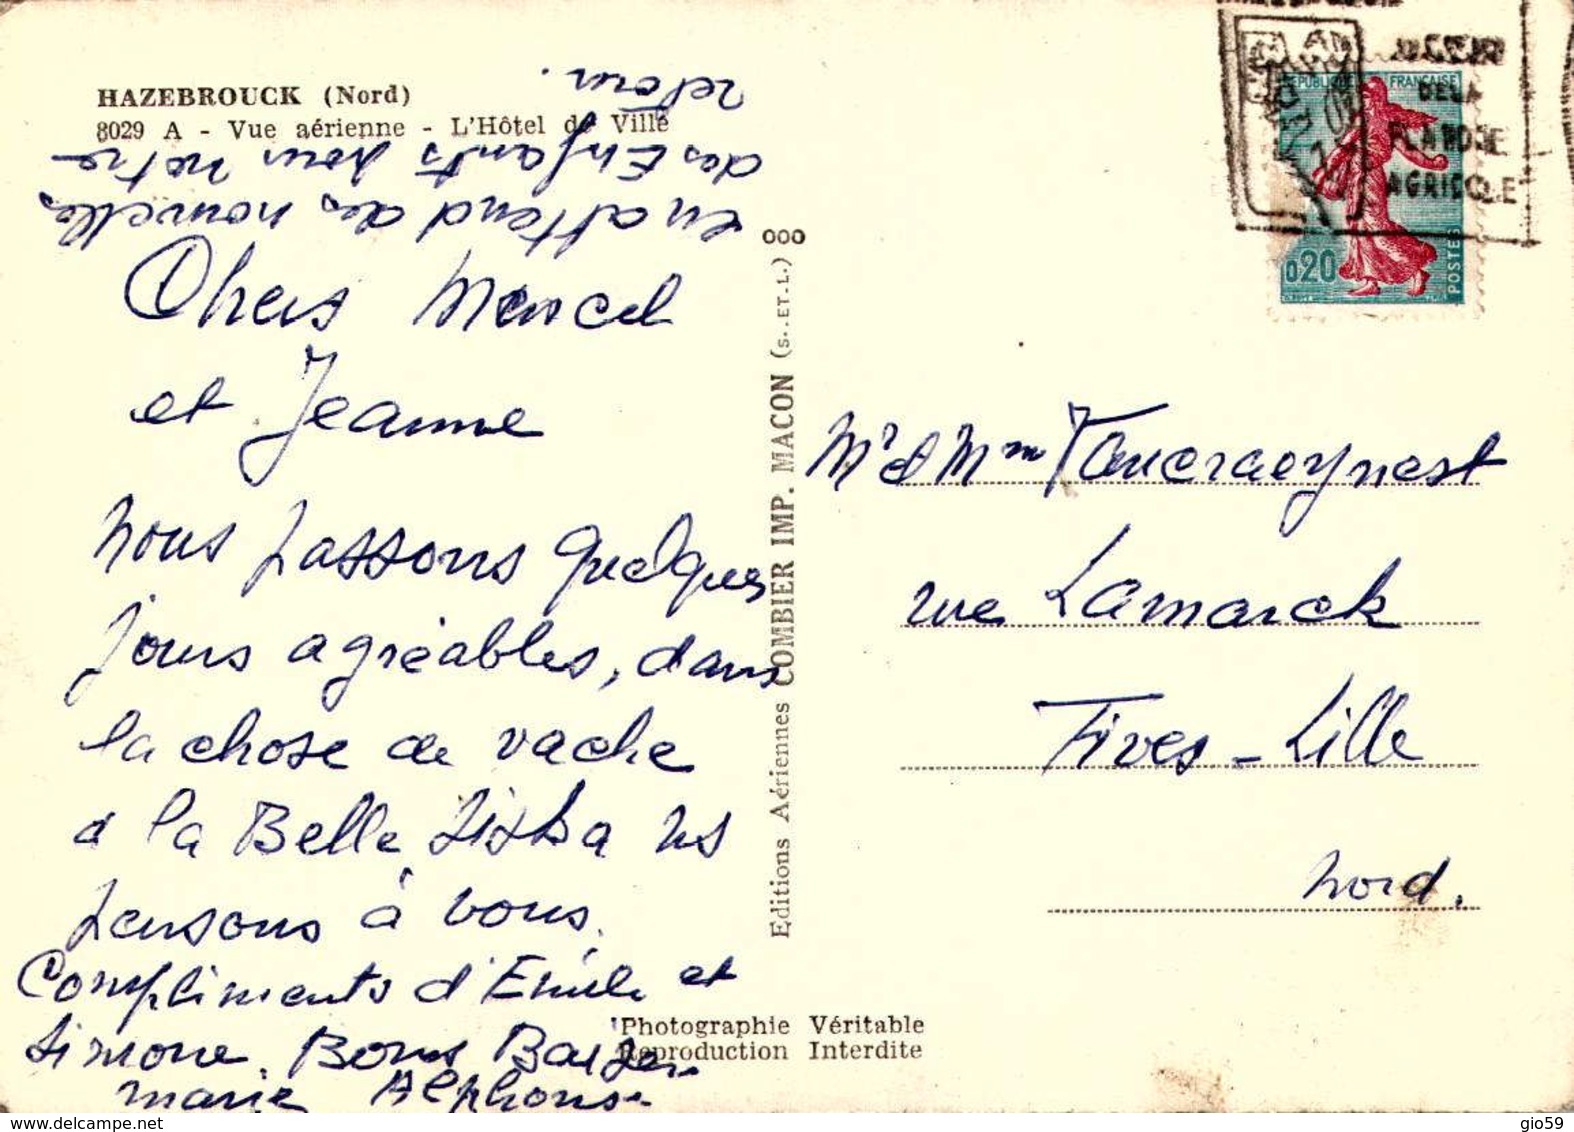 HAZEBROUCK (Nord)
8029 A - Vue aérienne - L'Hôtel de Ville
Chers Marcel
et Jeanne
nous passons quelques
jours agréables, dans
la chose de vache
à la Belle Siska ns
pensons à vous.
Compliments d'Emile et
Simone. Bons Baisers
marie Alphonse
en attend des nouvelles
des Enfants pour notre
retour.
Editions Aériennes COMBIER IMP. MACON (S.-ET-L.) OOO
Photographie Véritable
Reproduction Interdite
COEUR
DE LA
FLANDRE
AGRICOLE
REPUBLIQUE FRANÇAISE
0,20
POSTES
Mr et Mme Vancraeynest
rue Lamarck
Fives - Lille
Nord.
delcampe.net
gio59